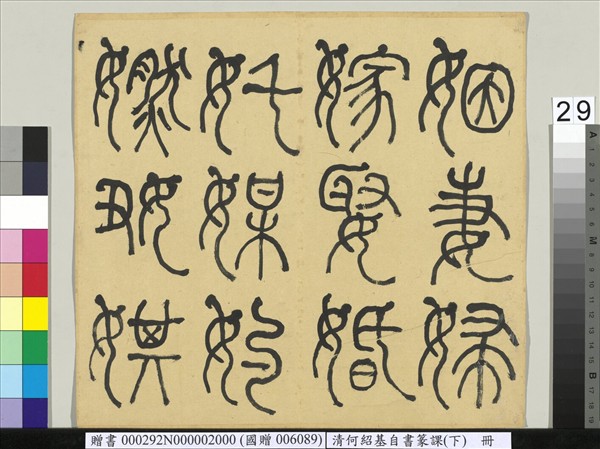 㜣娸
奼媒妁
嫁娶婚
姻妻婦
29
贈書 000292N000002000 (國贈 006089)
清何紹基自書篆課(下) 冊